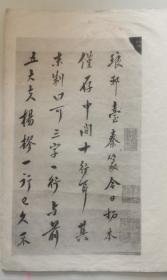 琅邪臺秦篆今日拓本
僅存中間十行耳其
末制曰可三字一行与前
五大夫楊樛一行已久不